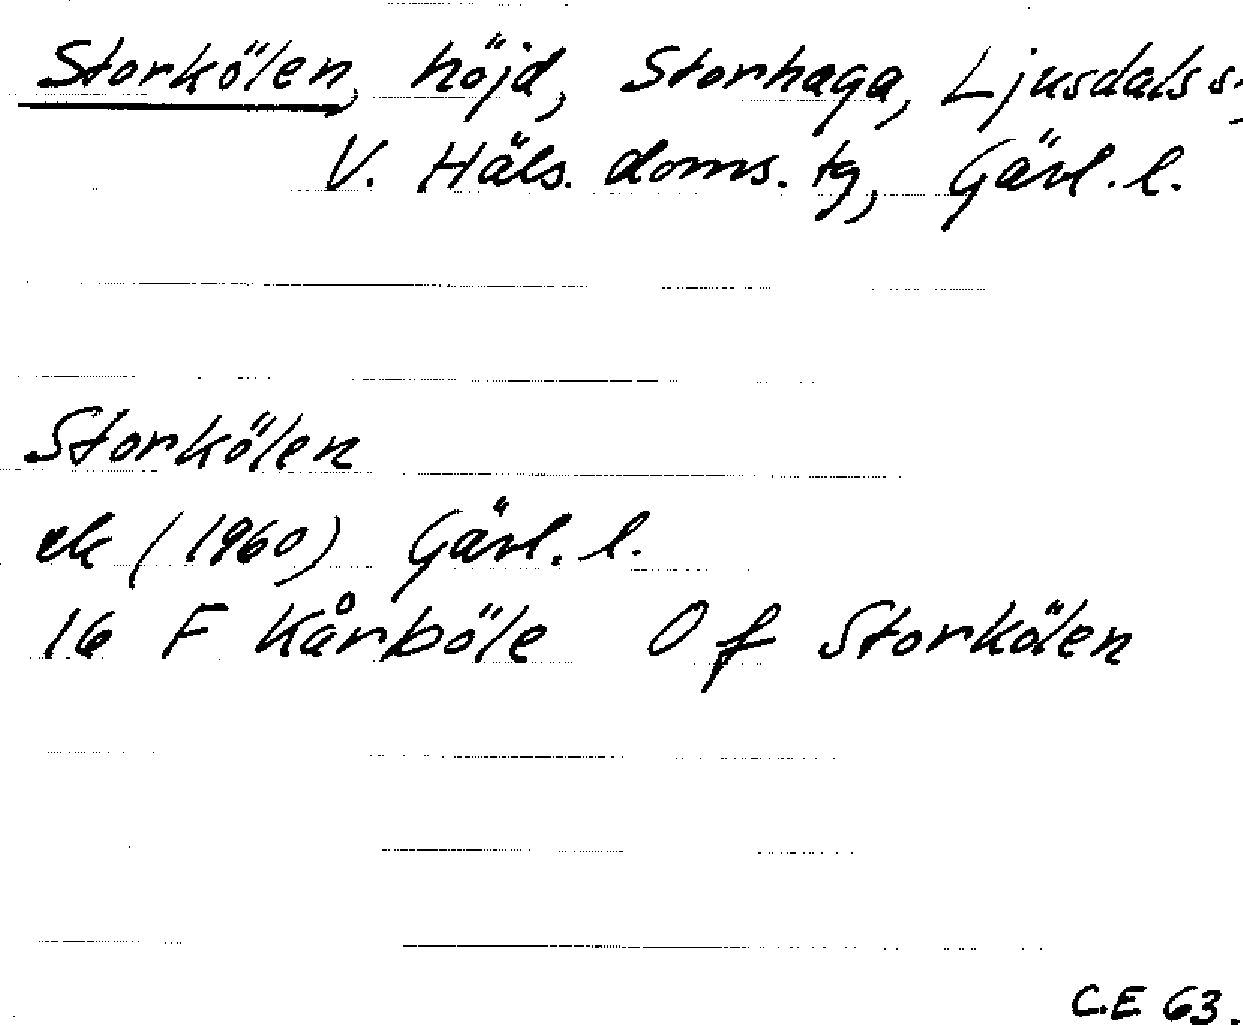 Storkölen, höjd, Storhaga, Ljusdals s.,
V. Häls. doms. tg, Gävl. l.
Storkölen
ek (1960) Gävl. l.
16 F Kårböle O f Storkölen
C.E 63.